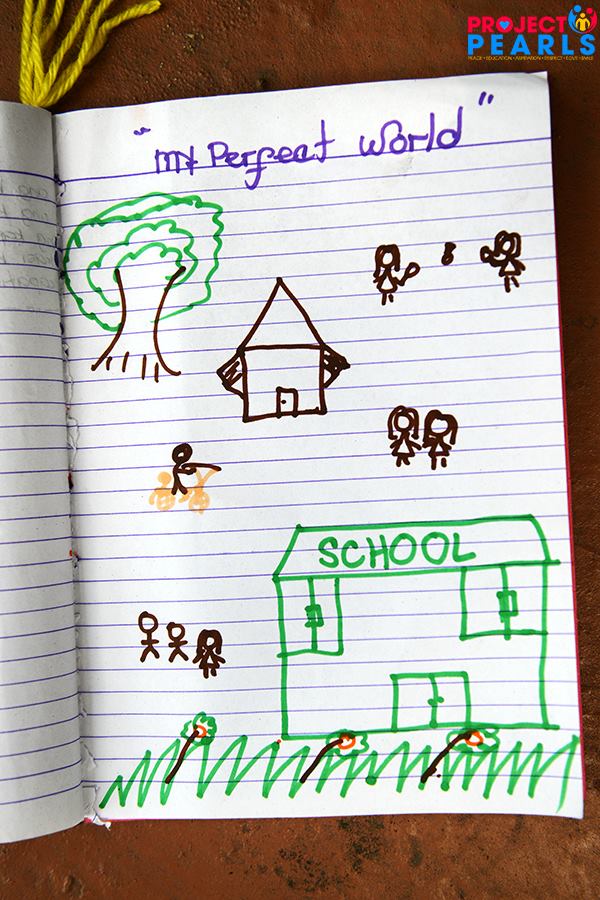 PROJECT
PEARLS
PEACE • EDUCATION • ASPIRATION • RESPECT • LOVE • SMILE
"my Perfect World"
SCHOOL